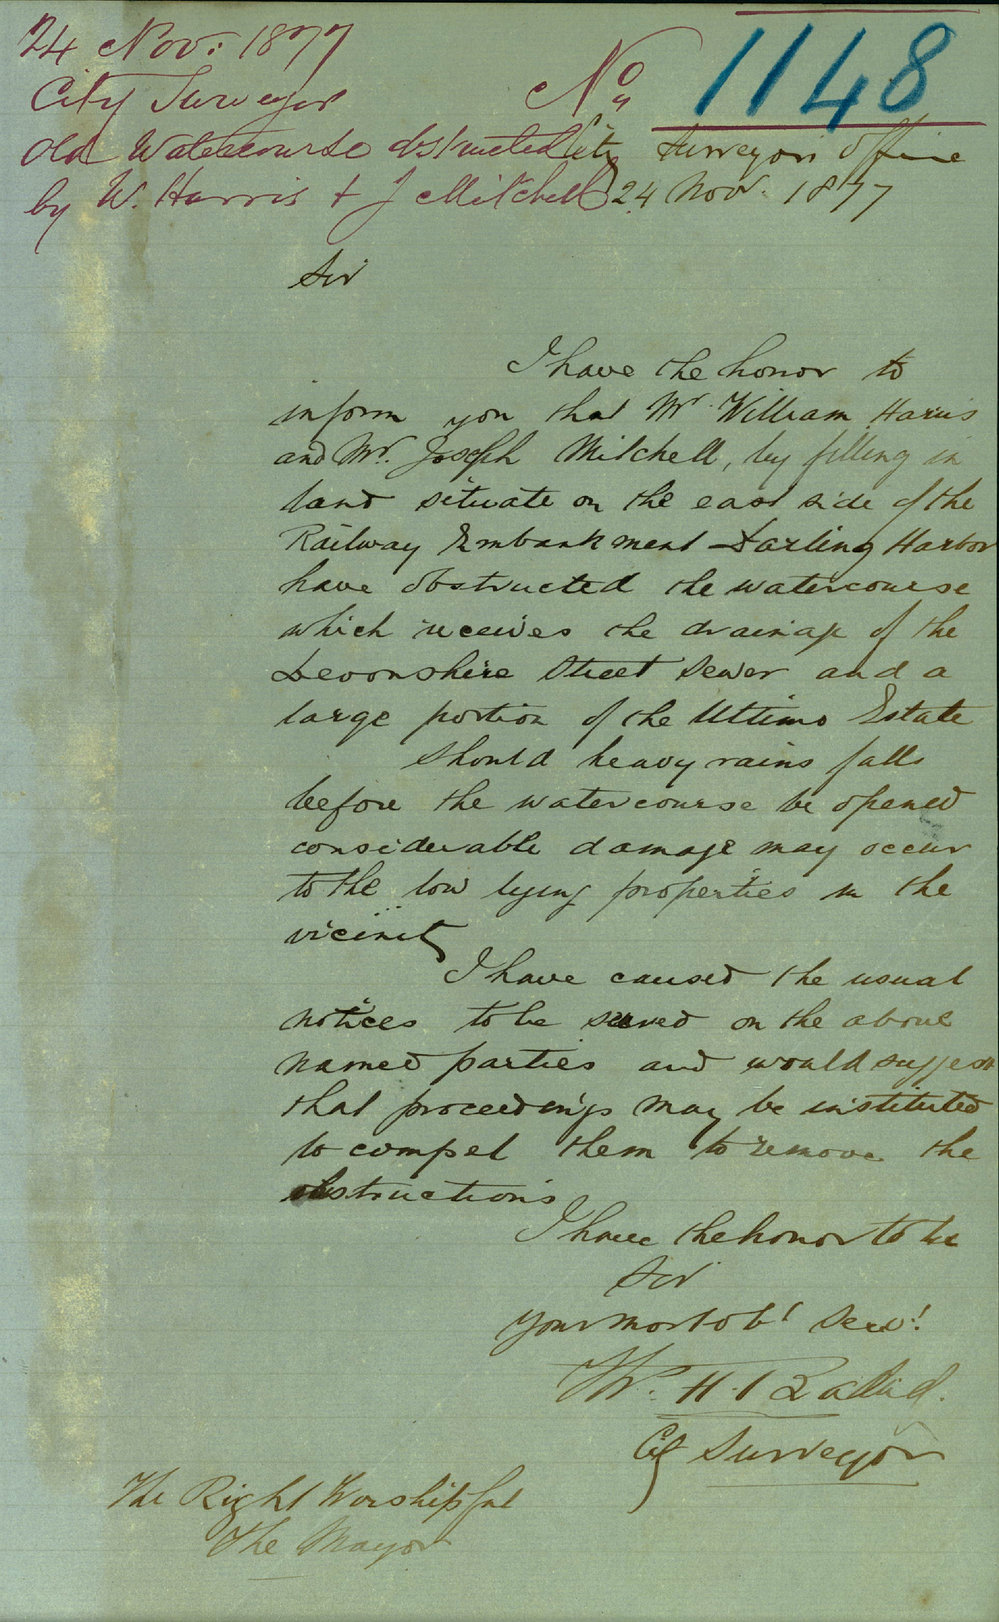 24 Nov: 1877
City Surveyor
Old Watercourse obstructed
by W. Harris & J Mitchell
No 1148
City Surveyors Office
24 Nov. 1877
Sir
I have the honor to
inform you that Mr. William Harris
and Mr. Joseph Mitchell, by filling in
land situate on the east side of the
Railway Embankment Darling Harbor
have obstructed the watercourse
which receives the drainage of the
Devonshire Street Sewer and a
large portion of the Ultimo Estate
Should heavy rains falls
before the watercourse be opened
considerable damage may occur
to the low lying properties in the
vicinity
I have caused the usual
notices to be served on the above
named parties and would suggest
that proceedings may be instituted
to compel them to remove the
obstructions
I have the honor to be
Sir
your most obt Servt
City Surveyor
The Right Worshipful
The Mayor